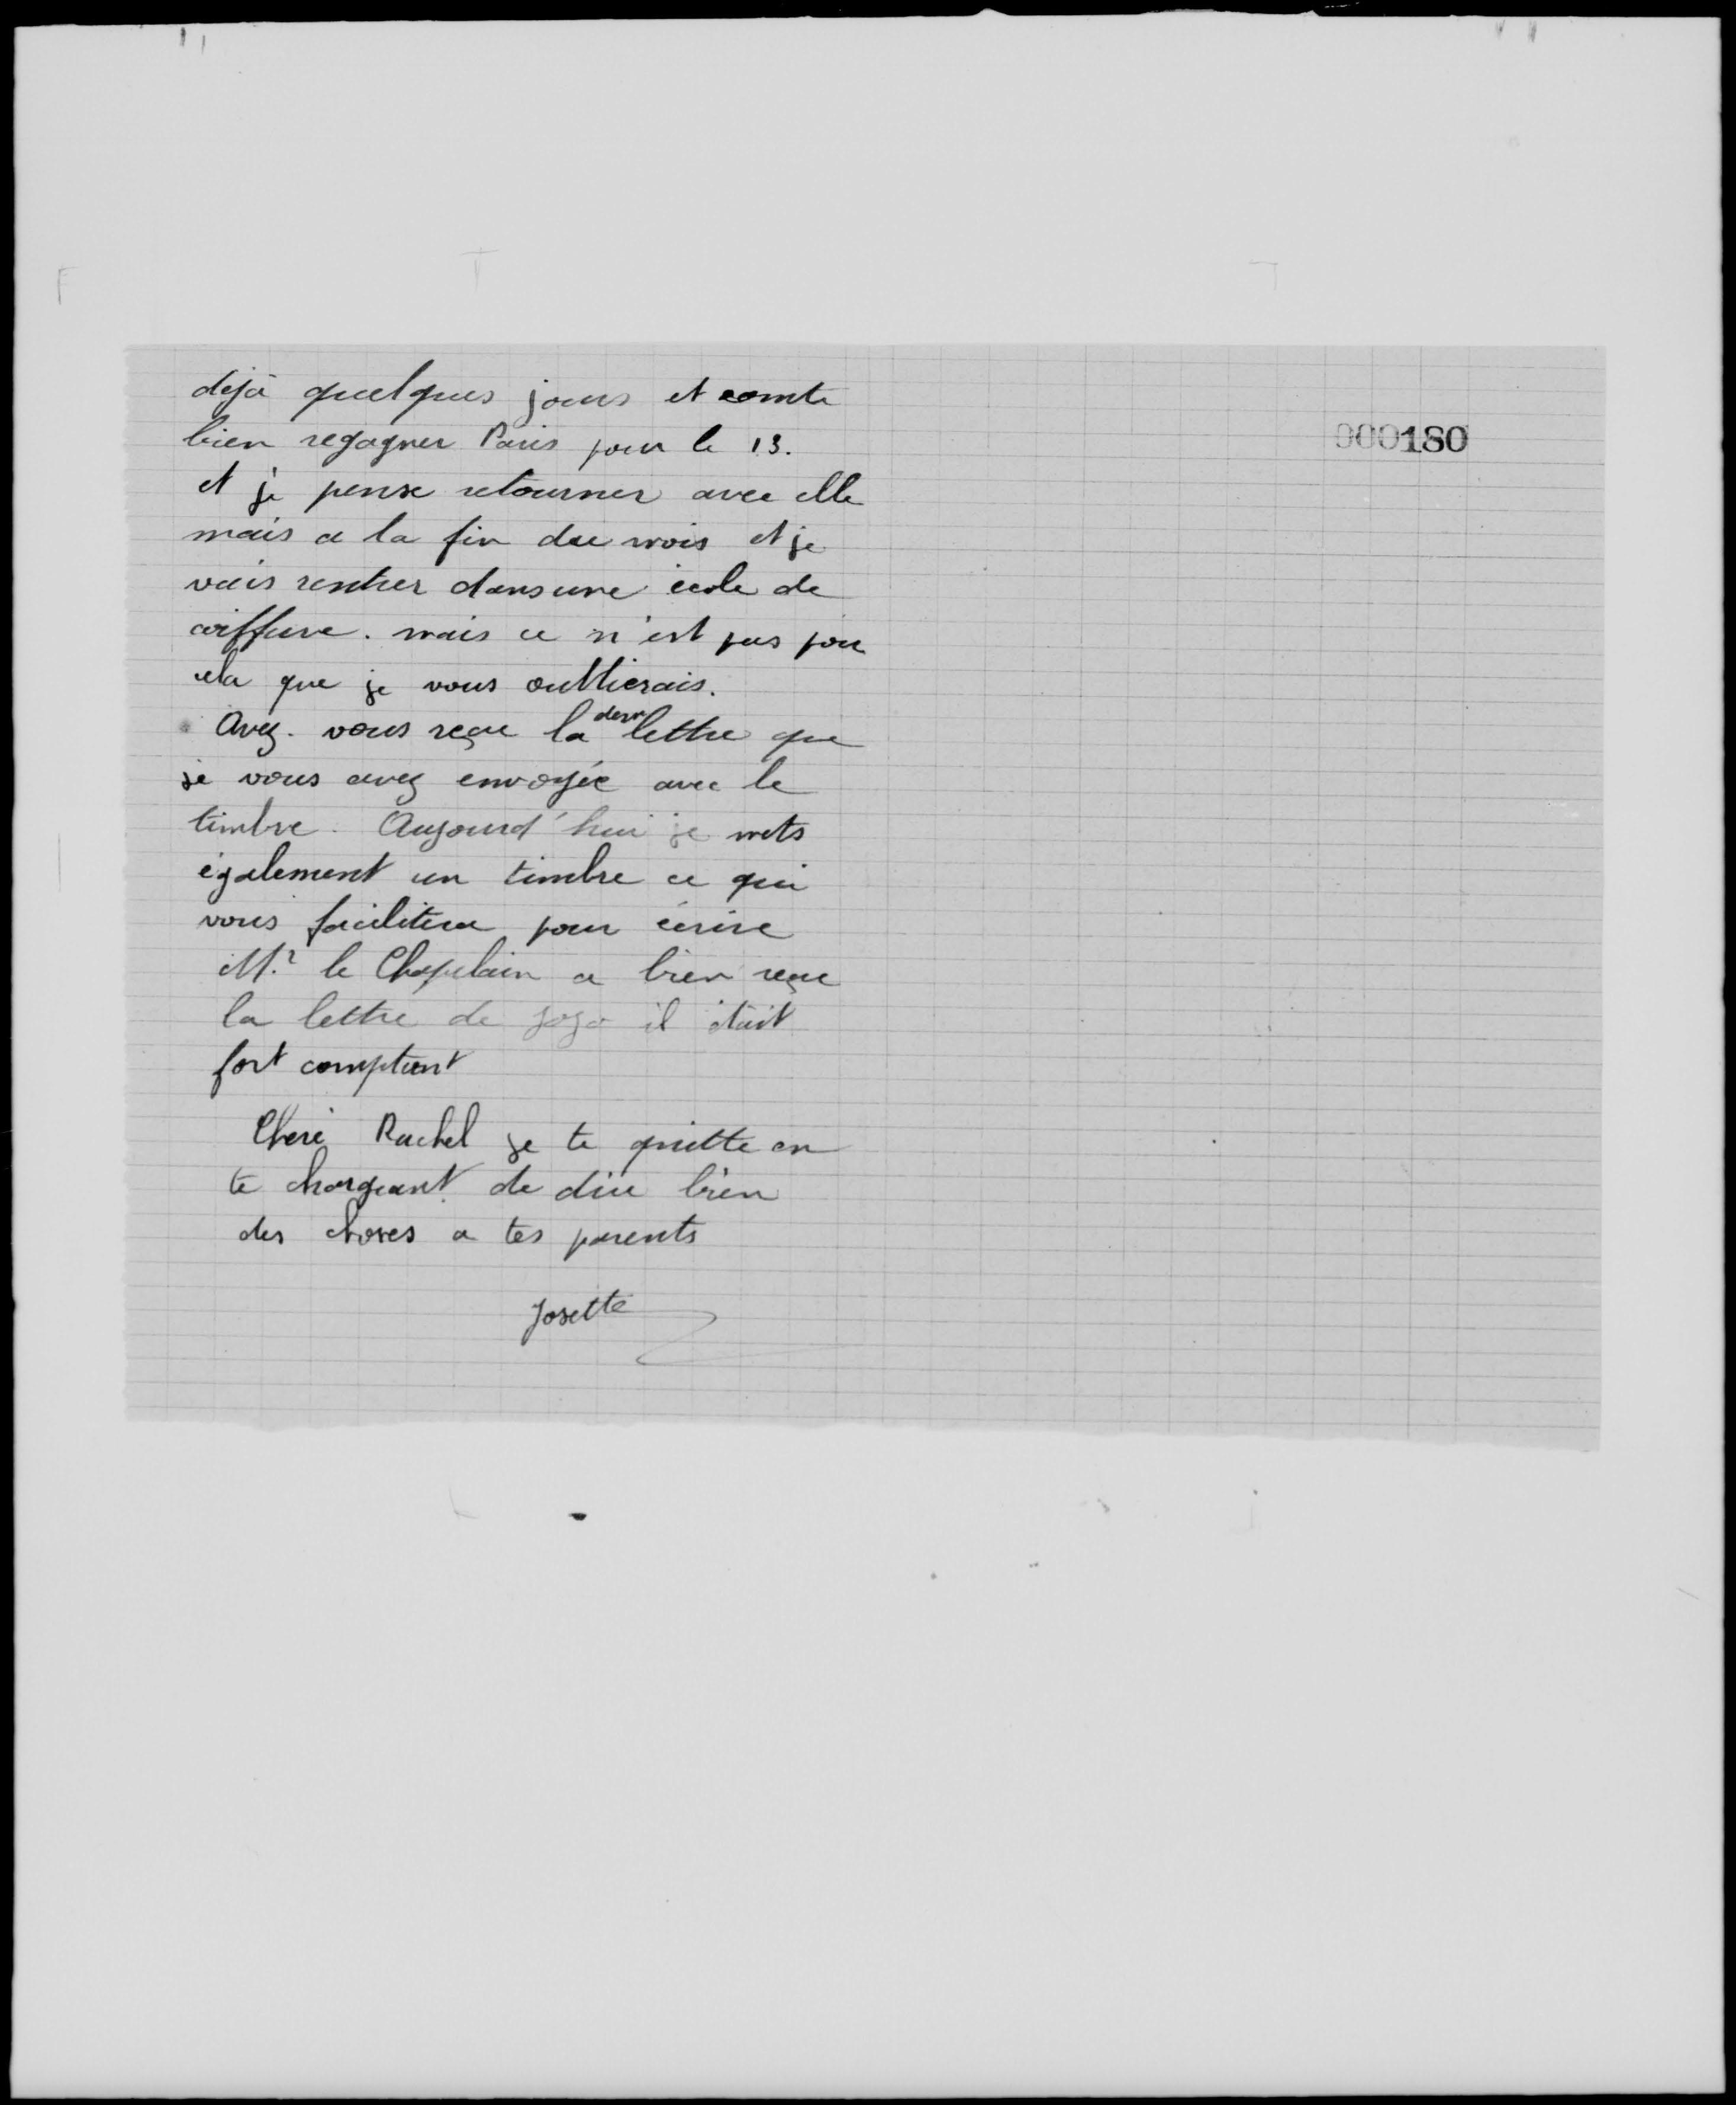 déjà quelques jours et comte
bien regagner Paris pour le 13.
et je pense retourner avec elle
mais a la fin du mois et je
vais rentrer dans une école de
coiffure. mais ce n'est pas pour
cela que je vous oublierais.
Avez-vous reçue la dern lettre que
je vous avez envoyée avec le
timbre. Aujourd'hui je mets
également un timbre ce qui
vous facilitera pour écrire
M.r le Chapelain a bien reçue
la lettre de Jojo il était
fort comptant
Cheré Rachel je te quitte en
te chargeant de dire bien
des choses a tes parents
Josette
000180